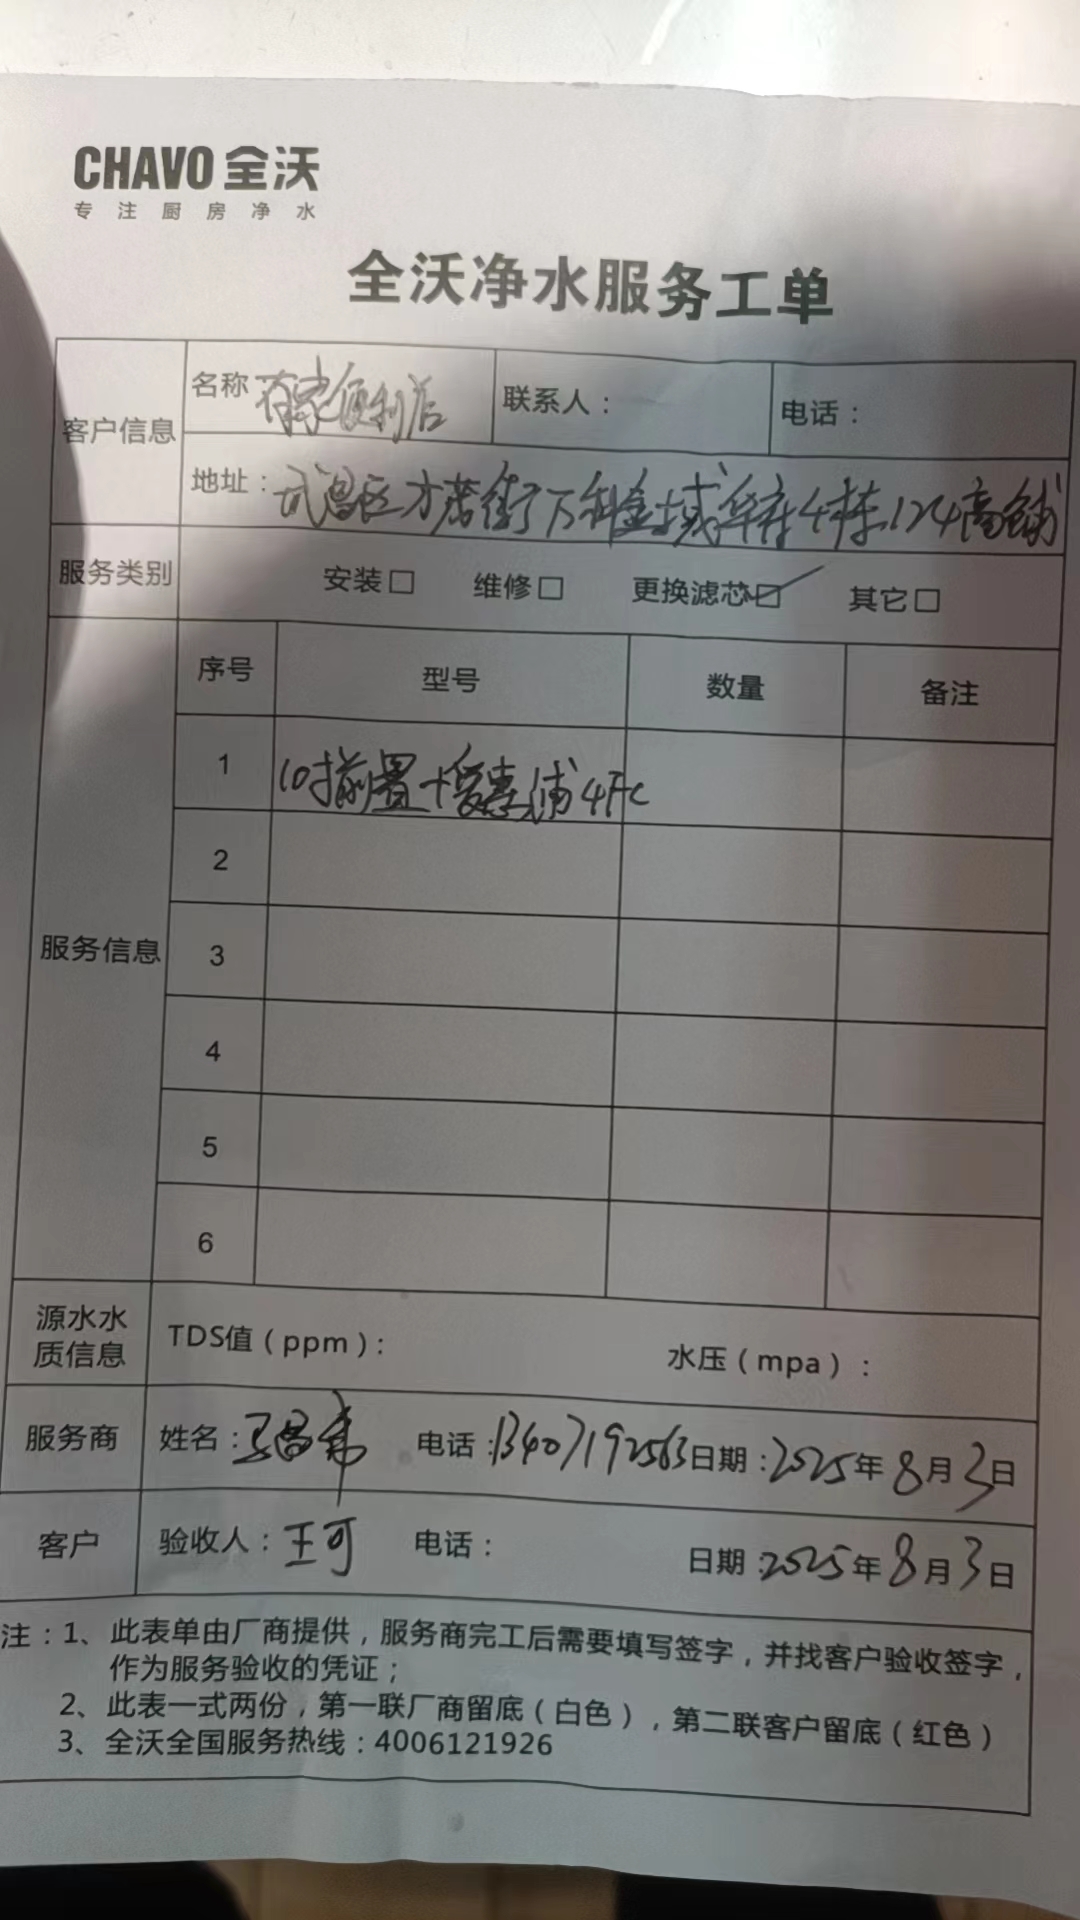 CHAVO 全沃
专注厨房净水
全沃净水服务工单
客户信息
名称 有家便利店 联系人： 电话：
地址：武昌区 街万科金域华府4栋124商铺
服务类别 安装□ 维修□ 更换滤芯☑ 其它□
服务信息
序号 型号 数量 备注
1 10寸前置+爱惠浦4FC
2
3
4
5
6
源水水质信息 TDS值（ppm）： 水压（mpa）：
服务商 姓名：王昌希 电话：13407192563 日期：2025年8月3日
客户 验收人：王可 电话： 日期：2025年8月3日
注：1、此表单由厂商提供，服务商完工后需要填写签字，并找客户验收签字，
作为服务验收的凭证；
2、此表一式两份，第一联厂商留底（白色），第二联客户留底（红色）
3、全沃全国服务热线：4006121926